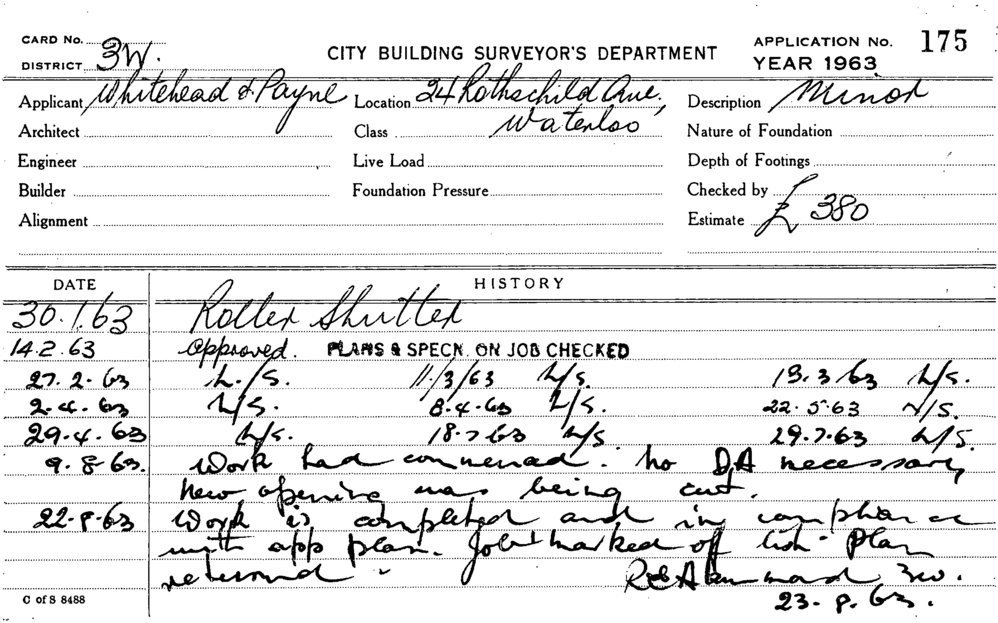 CARD No. 3W.
DISTRICT
CITY BUILDING SURVEYOR'S DEPARTMENT
APPLICATION No. 175
YEAR 1963
Applicant Whitehead & Payne Location 24 Rothschild Ave. Description Minor
Architect Class Waterloo Nature of Foundation
Engineer Live Load Depth of Footings
Builder Foundation Pressure Checked by
Alignment Estimate £ 380
DATE HISTORY
30.1.63 Roller Shutter
14.2.63 Approved. PLANS & SPECN. ON JOB CHECKED
27.2.63 N/S. 11/3/63 N/S. 19.3.63 N/S.
2.4.63 N/S. 8.4.63 N/S. 22.5.63 N/S.
29.4.63 N/S. 18.7.63 N/S 29.7.63 N/S.
9.8.63. Work had commenced. No DA necessary
new opening was being cut.
22.8.63 Work is completed and in compliance
with app plan. Job marked off list. Plan
returned. 3W.
23.8.63.
C of S 8488